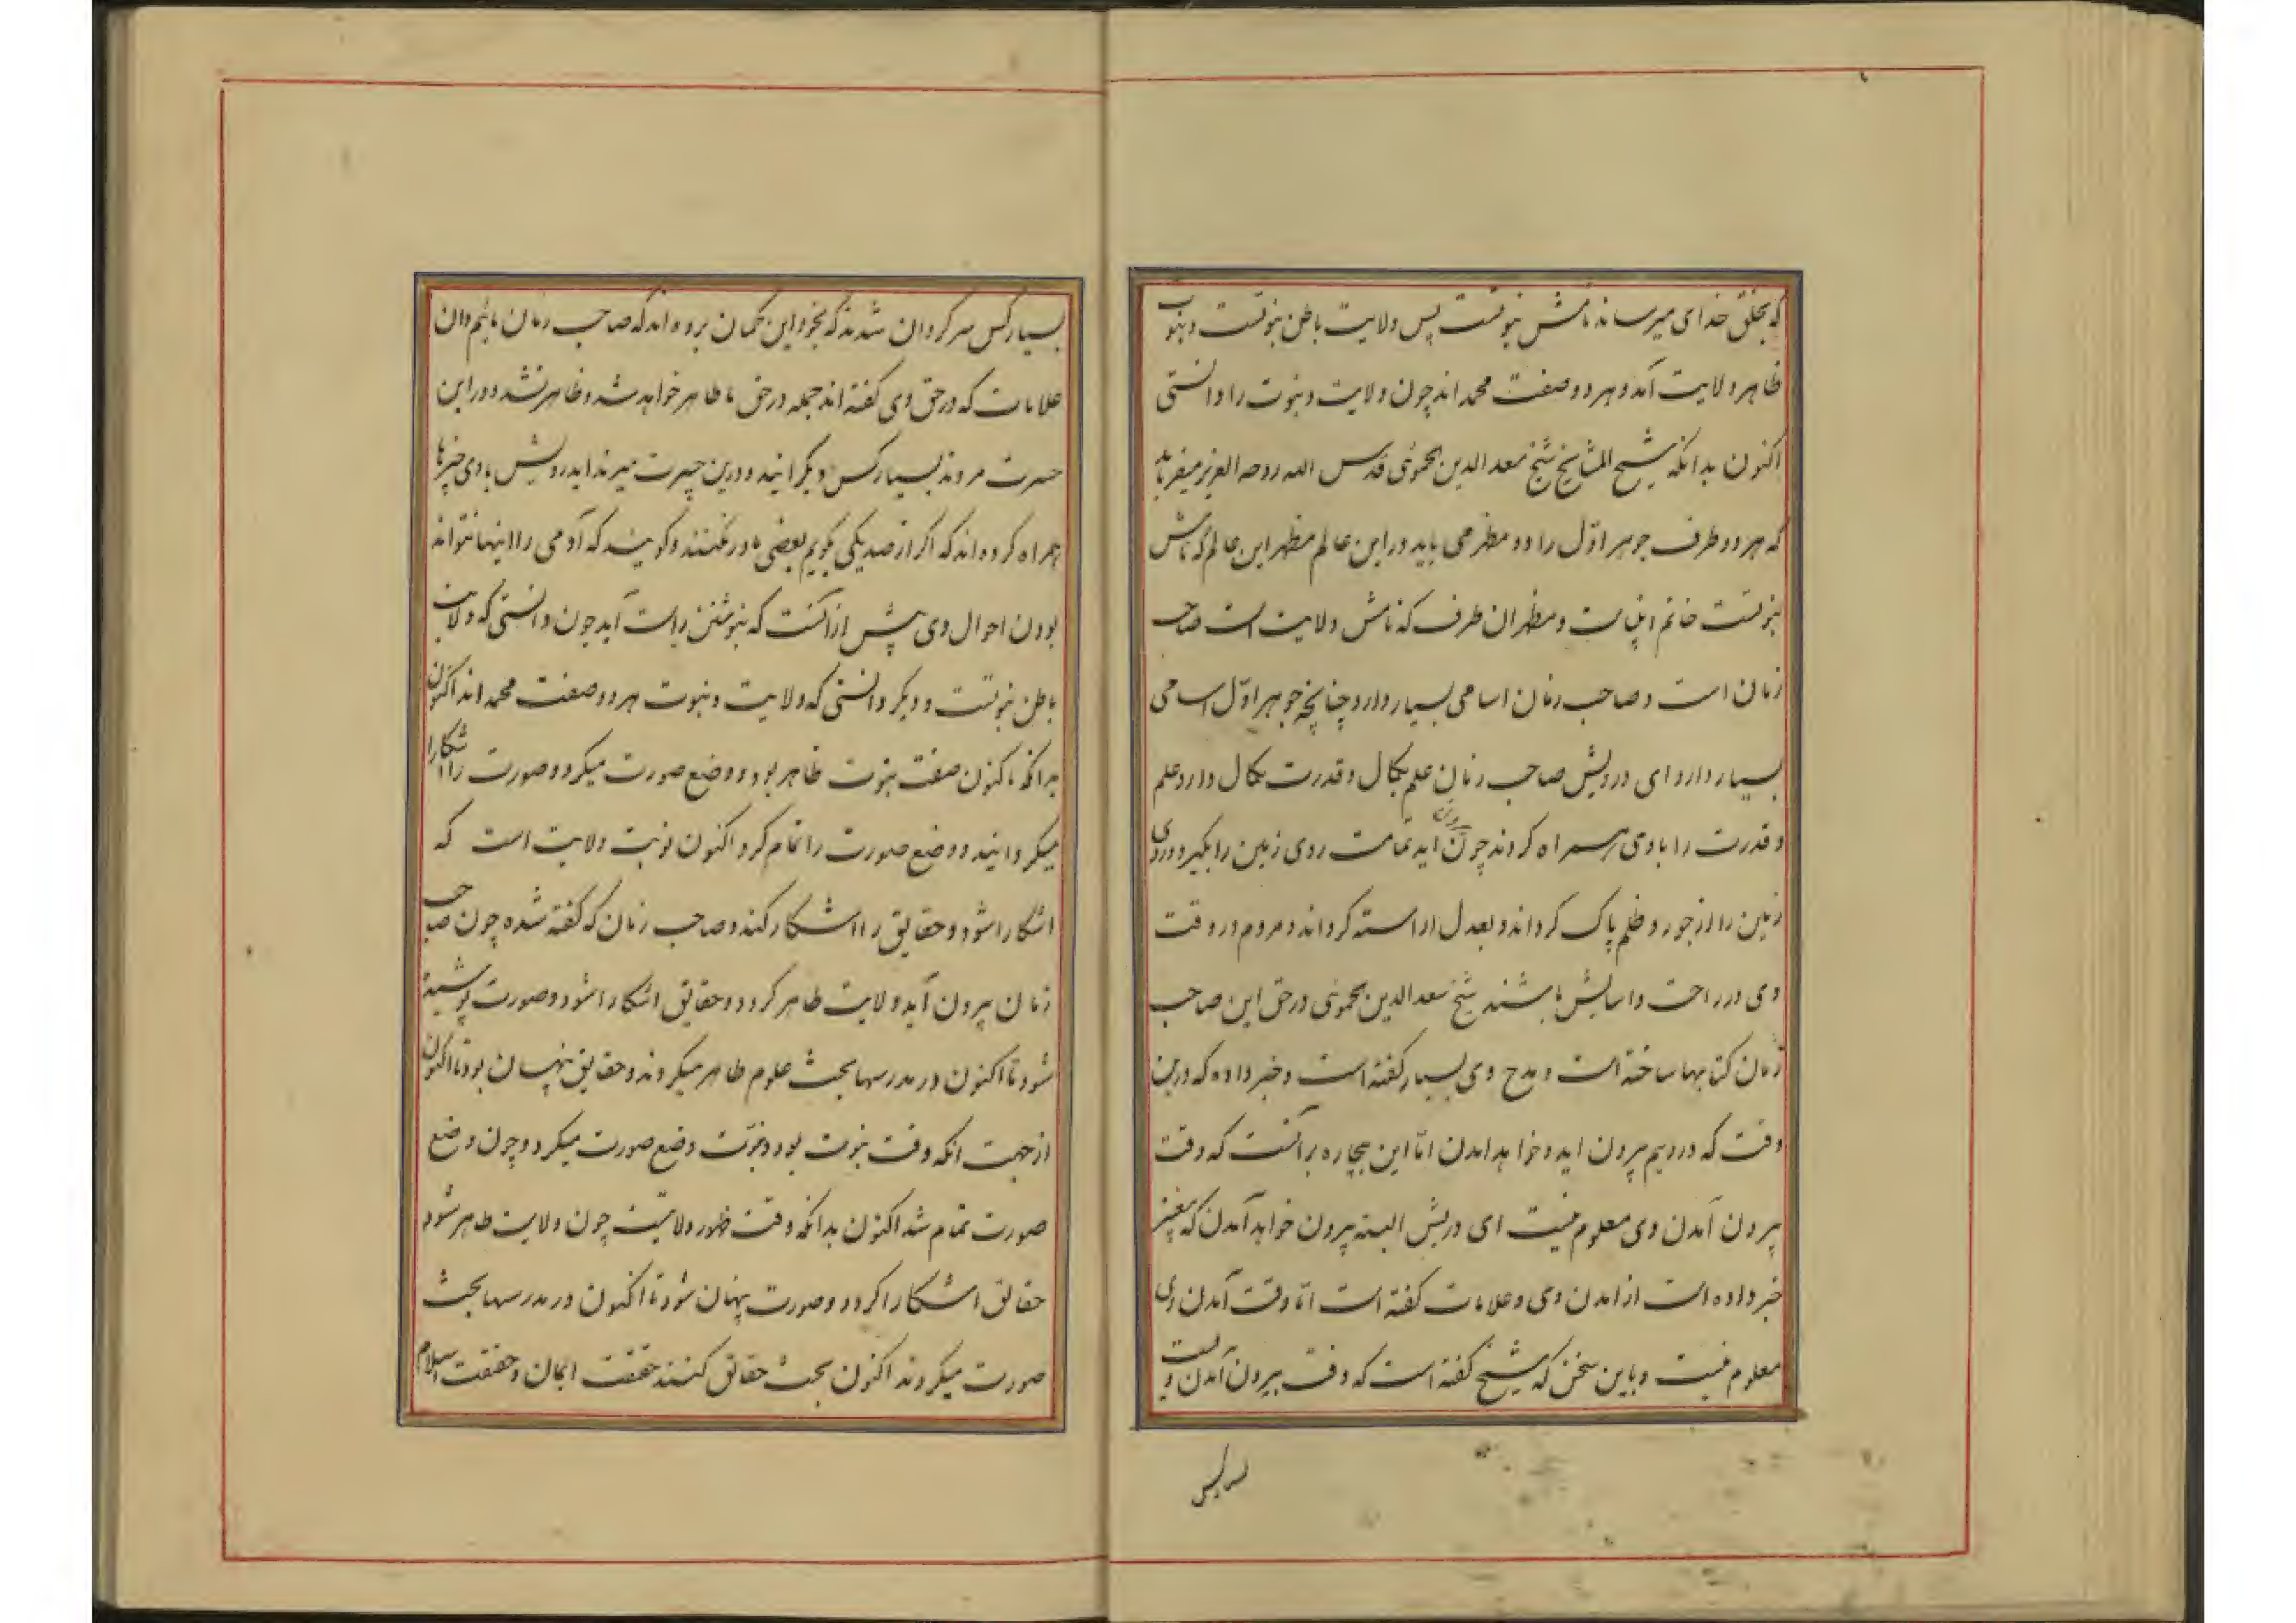 که بخلق خدای میرساند نامش نبوتست پس ولایت باطن نبوتست و نبوت
ظاهر ولایت آمد و هر دو صفت محمد اند چون ولایت و نبوت را دانستی
اکنون بدانکه شیخ المشایخ شیخ سعد الدین الحموئی قدس الله روحه العزیز میفرماید
که هر دو طرف جوهر اول را دو مظهر می باید در این عالم مظهر این عالم که نامش
نبوتست خاتم انبیاست و مظهر ان طرف که نامش ولایت است صاحب
زمان است و صاحب زمان اسامی بسیار دارد چنانچه جوهر اول اسامی
بسیار دارد ای درویش صاحب زمان علم بکمال و قدرت بکمال دارد علم
و قدرت را با وی همراه کردند چون بیرون اید تمامت روی زمین را بگیرد و روی
زمین را از جور و ظلم پاک کرداند و بعدل اراسته کرداند و مردم در وقت
وی در راحت و اسایش باشند شیخ سعد الدین الحموئی در حق این صاحب
زمان کتابها ساخته است و مدح وی بسیار کفته است و خبر داده که درین
وقت که دردیم بیرون اید و خواهد امدن اما این بیچاره برآنست که وقت
بیرون آمدن وی معلوم نیست ای دریش البته بیرون خواهد آمدن که پیغمبر
خبر داده است از امدن وی و علامات کفته است اما وقت آمدن وی
معلوم نیست و باین سخن که شیخ کفته است که وقت بیرون آمدن ویست
بسیار کس سر کردان شدند که بخود این کمان برده اند که صاحب زمان مائیم وان
علامات که در حق وی کفته اند جمله در حق ما ظاهر خواهد شد و ظاهر نشد و در این
حسرت مردند بسیار کس دیکر ایند و درین حسرت میرند ایدرویش با وی خبرها
همراه کرده اند که اکر از صد یکی بکویم بعضی باور نکنند و کویند که آدمی را اینها نتواند
بودن احوال وی پیش از آنست که بنوشتن راست آید چون دانستی که ولایت
باطن نبوتست و دیکر دانستی که ولایت و نبوت هر دو صفت محمد اند اکنون
بدانکه تاکنون صفت نبوت ظاهر بود و وضع صورت میکرد و صورت را اشکارا
میکردانید و وضع صورت را تمام کرد اکنون نوبت ولایت است که
اشکارا شود و حقایق را اشکار کند و صاحب زمان که کفته شده چون صاحب
زمان بیرون آید ولایت ظاهر کردد و حقایق اشکارا شود و صورت پوشیده
شود تا اکنون در مدرسها بحث علوم ظاهر میکردند و حقایق پنهان بود تا اکنون
از جهت انکه وقت نبوت بود و نبوت وضع صورت میکرد و چون وضع
صورت تمام شد اکنون بدانکه وقت ظهور ولایتست چون ولایت ظاهر شود
حقایق اشکارا کردد و صورت پنهان شود تا اکنون در مدرسها بحث
صورت میکردند اکنون بحث حقائق کنند حقیقت ایمان و حقیقت اسلام